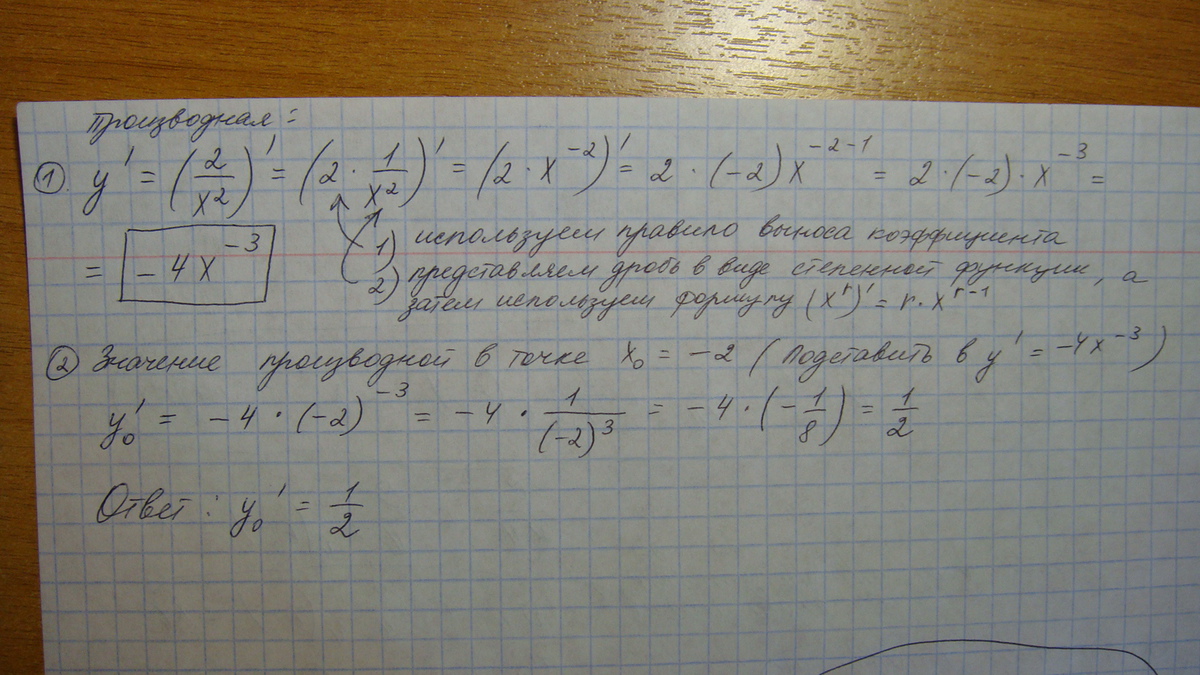 Производная:
① y' = (2/x²)' = (2 · 1/x²)' = (2 · x⁻²)' = 2 · (-2)x⁻²⁻¹ = 2 · (-2) · x⁻³ =
= -4x⁻³
1) используем правило выноса коэффициента
2) представляем дробь в виде степенной функции, а
затем используем формулу (xʳ)' = r · xʳ⁻¹
② Значение производной в точке x₀ = -2 (подставить в y' = -4x⁻³)
y₀' = -4 · (-2)⁻³ = -4 · 1/(-2)³ = -4 · (-1/8) = 1/2
Ответ: y₀' = 1/2